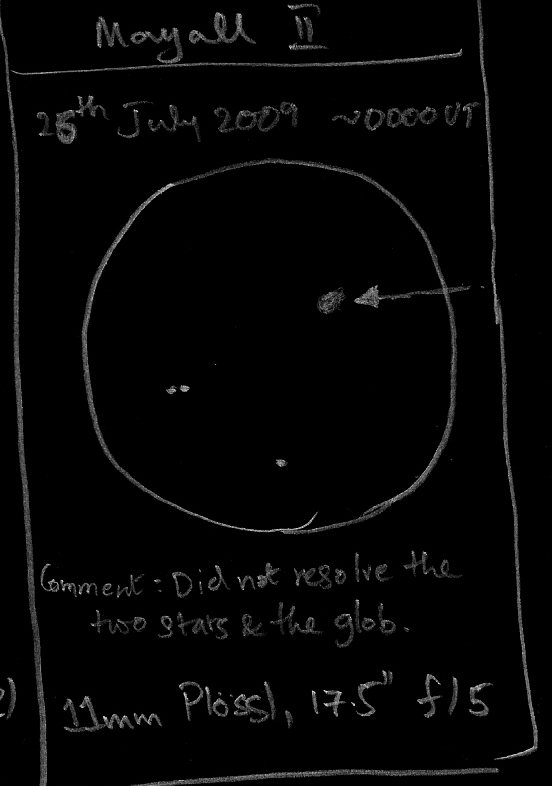 Mayall II
25th July 2009 ~0000UT
Comment: Did not resolve the
two stars & the glob.
11mm Plössl, 17.5" f/5